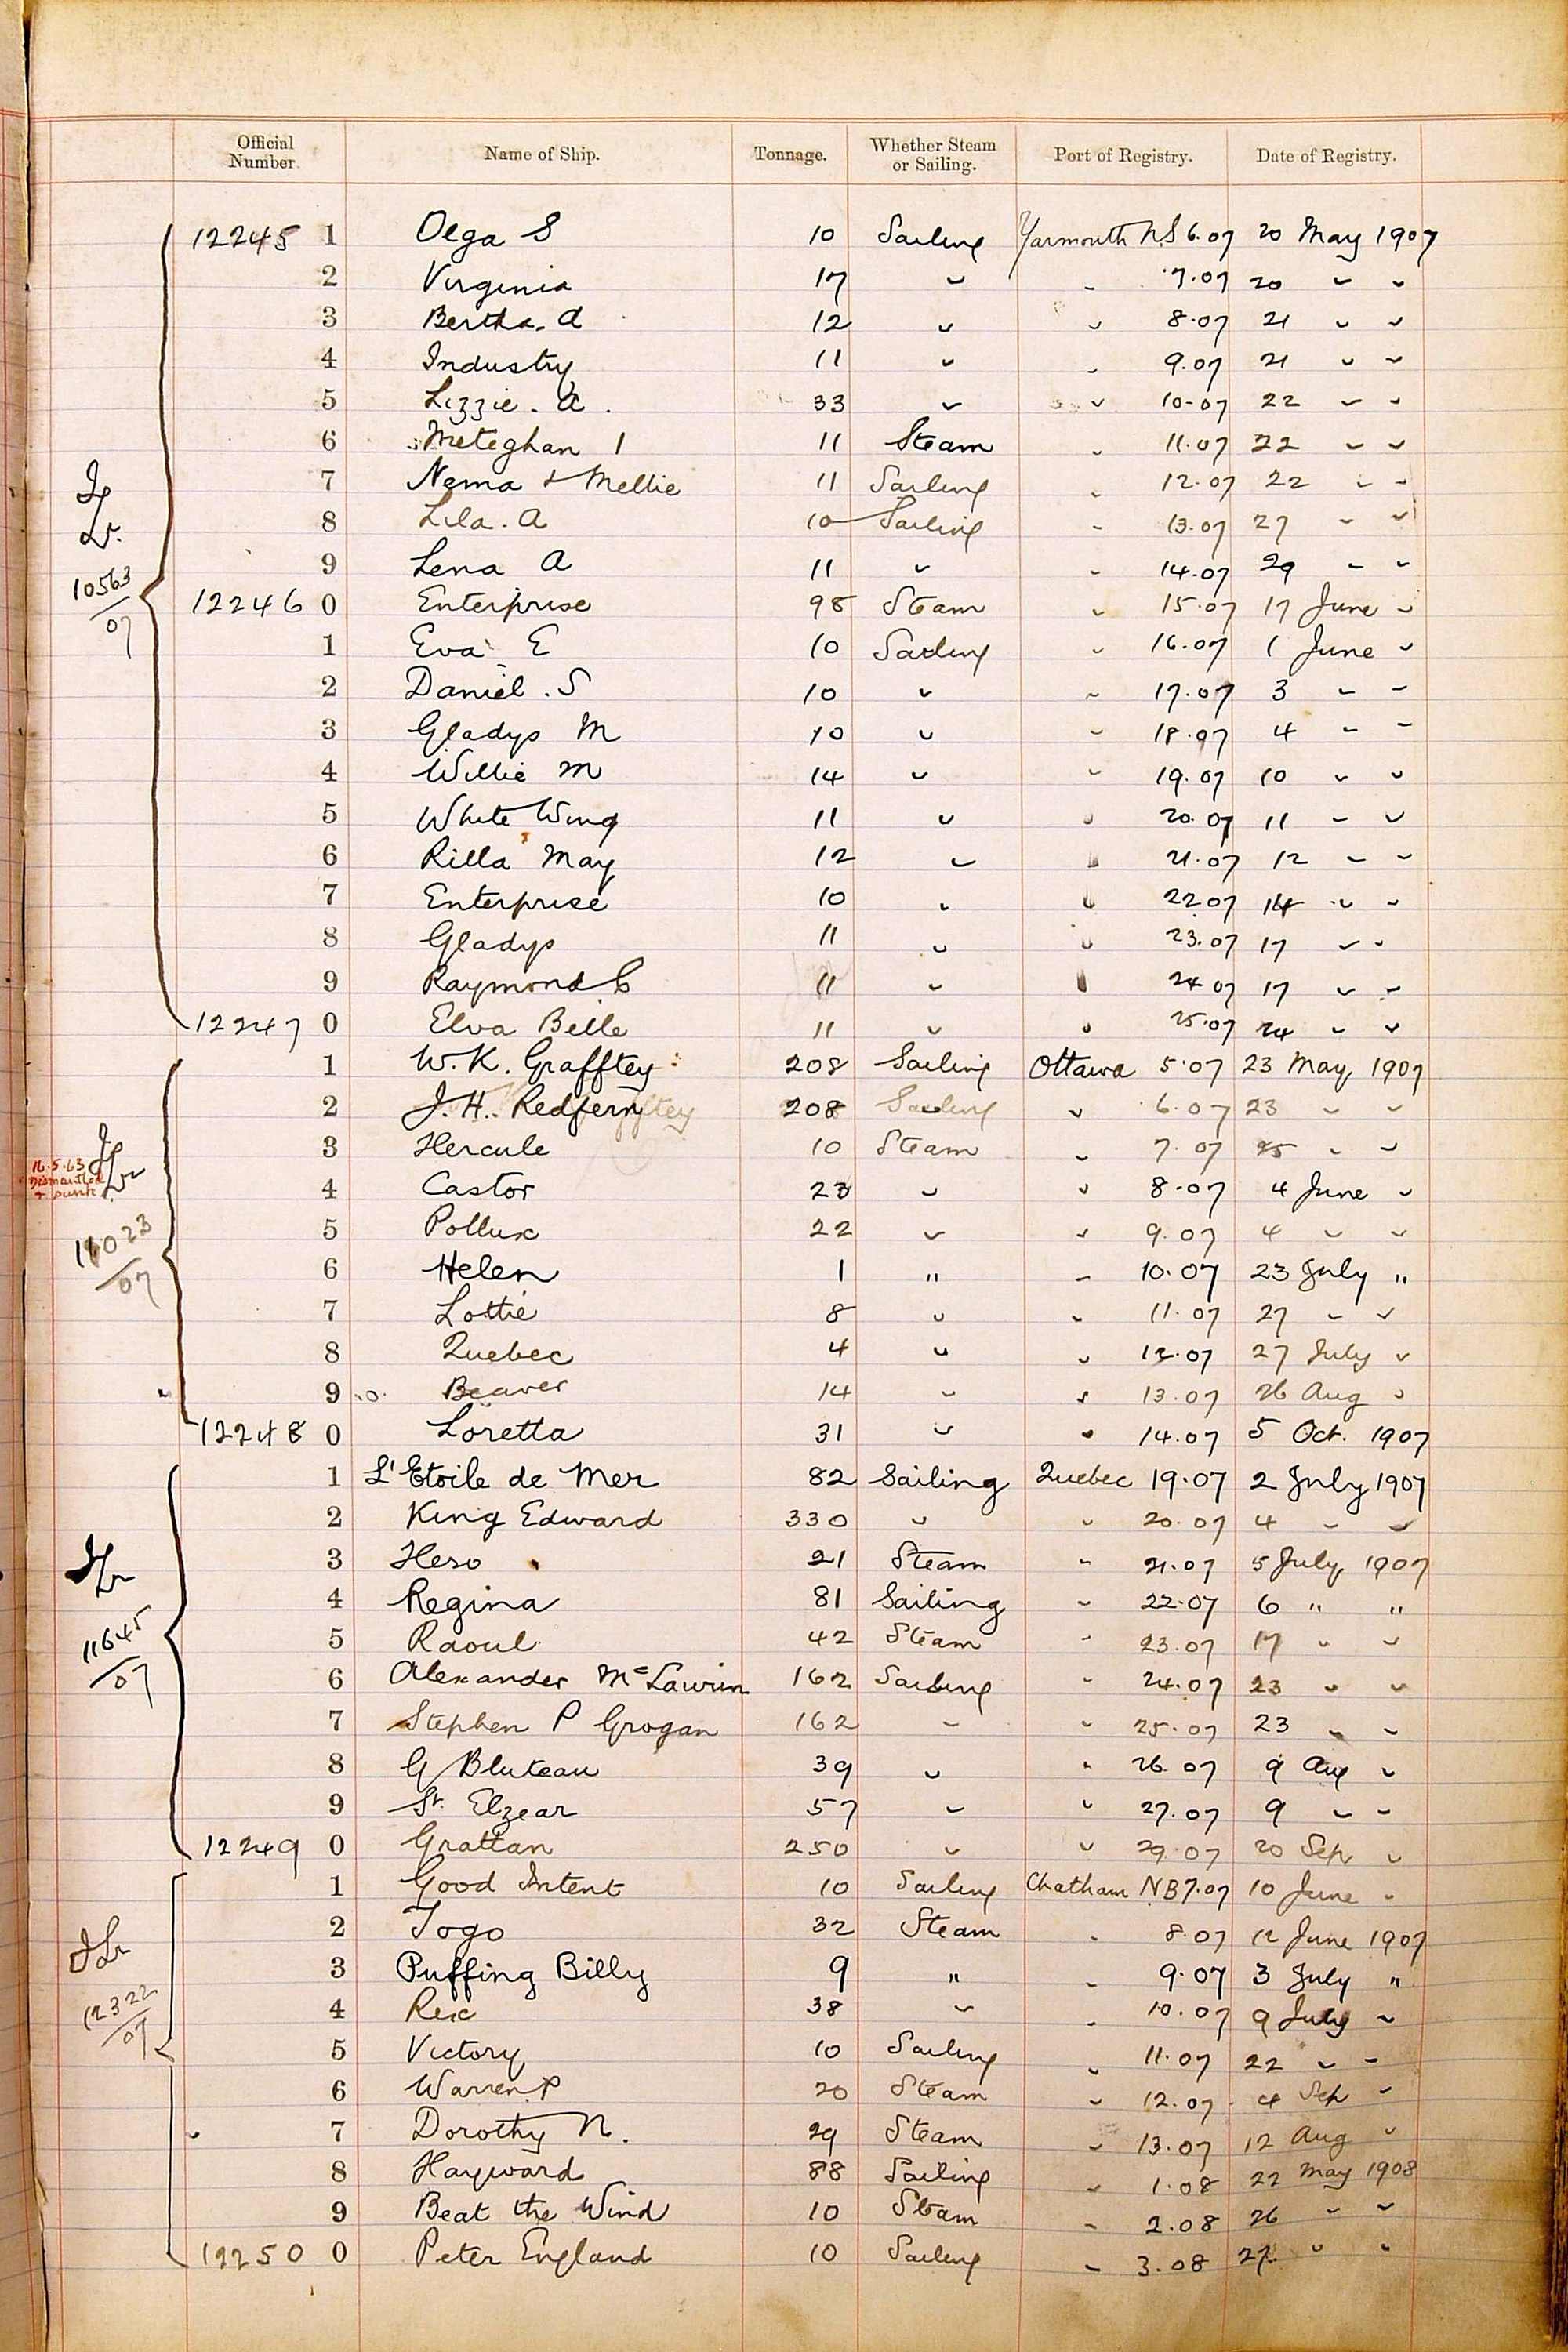 Official Number. Name of Ship. Tonnage. Whether Steam or Sailing. Port of Registry. Date of Registry.
12245 1 Olga S 10 Sailing Yarmouth N.S 6.07 20 May 1907
2 Virginia 17 " " 7.07 20 " "
3 Bertha. A 12 " " 8.07 21 " "
4 Industry 11 " " 9.07 21 " "
5 Lizzie. A. 33 " " 10-07 22 " "
6 Meteghan 1 11 Steam " 11.07 22 " "
7 Nema & Mellie 11 Sailing " 12.07 22 " "
8 Lila. A 10 Sailing " 13.07 27 " "
9 Lena A 11 " " 14.07 29 " "
12246 0 Enterprise 98 Steam " 15.07 17 June "
1 Eva E 10 Sailing " 16.07 1 June "
2 Daniel. S 10 " " 17.07 3 " "
3 Gladys M 10 " " 18.07 4 " "
4 Willie M 14 " " 19.07 10 " "
5 White Wing 11 " " 20.07 11 " "
6 Rilla May 12 " " 21.07 12 " "
7 Enterprise 10 " " 22.07 14 " "
8 Gladys 11 " " 23.07 17 " "
9 Raymond C 11 " " 24 07 17 " "
12247 0 Elva Belle 11 " " 25.07 24 " "
10563/07
1 W. K. Grafftey 208 Sailing Ottawa 5.07 23 May 1907
2 J. H. Redfern 208 Sailing " 6.07 23 " "
3 Hercule 10 Steam " 7.07 25 " "
4 Castor 23 " " 8.07 4 June "
5 Pollux 22 " " 9.07 4 " "
6 Helen 1 " " 10.07 23 July "
7 Lottie 8 " " 11.07 27 " "
8 Quebec 4 " " 12.07 27 July "
9 Beaver 14 " " 13.07 26 Aug "
12248 0 Loretta 31 " " 14.07 5 Oct. 1907
16.5.63
Dismantled
+ sunk
1 L'Etoile de Mer 82 Sailing Quebec 19.07 2 July 1907
2 King Edward 330 " " 20.07 4 " "
3 Hero 21 Steam " 21.07 5 July 1907
4 Regina 81 Sailing " 22.07 6 " "
5 Raoul 42 Steam " 23.07 17 " "
6 Alexander McLaurin 162 Sailing " 24.07 23 " "
7 Stephen P Grogan 162 " " 25.07 23 " "
8 G Bluteau 39 " " 26.07 9 Aug "
9 St. Elzear 57 " " 27.07 9 " "
12249 0 Grattan 250 " " 29.07 20 Sep "
11645/07
1 Good Intent 10 Sailing Chatham NB 7.07 10 June "
2 Togo 32 Steam " 8.07 12 June 1907
3 Puffing Billy 9 " " 9.07 3 July "
4 Rex 38 " " 10.07 9 July "
5 Victory 10 Sailing " 11.07 22 " "
6 Warren P 20 Steam " 12.07 4 Sep "
7 Dorothy N. 29 Steam " 13.07 12 Aug "
8 Hayward 88 Sailing " 1.08 22 May 1908
9 Beat the Wind 10 Steam " 2.08 26 " "
12250 0 Peter England 10 Sailing " 3.08 27 " "
12322/07